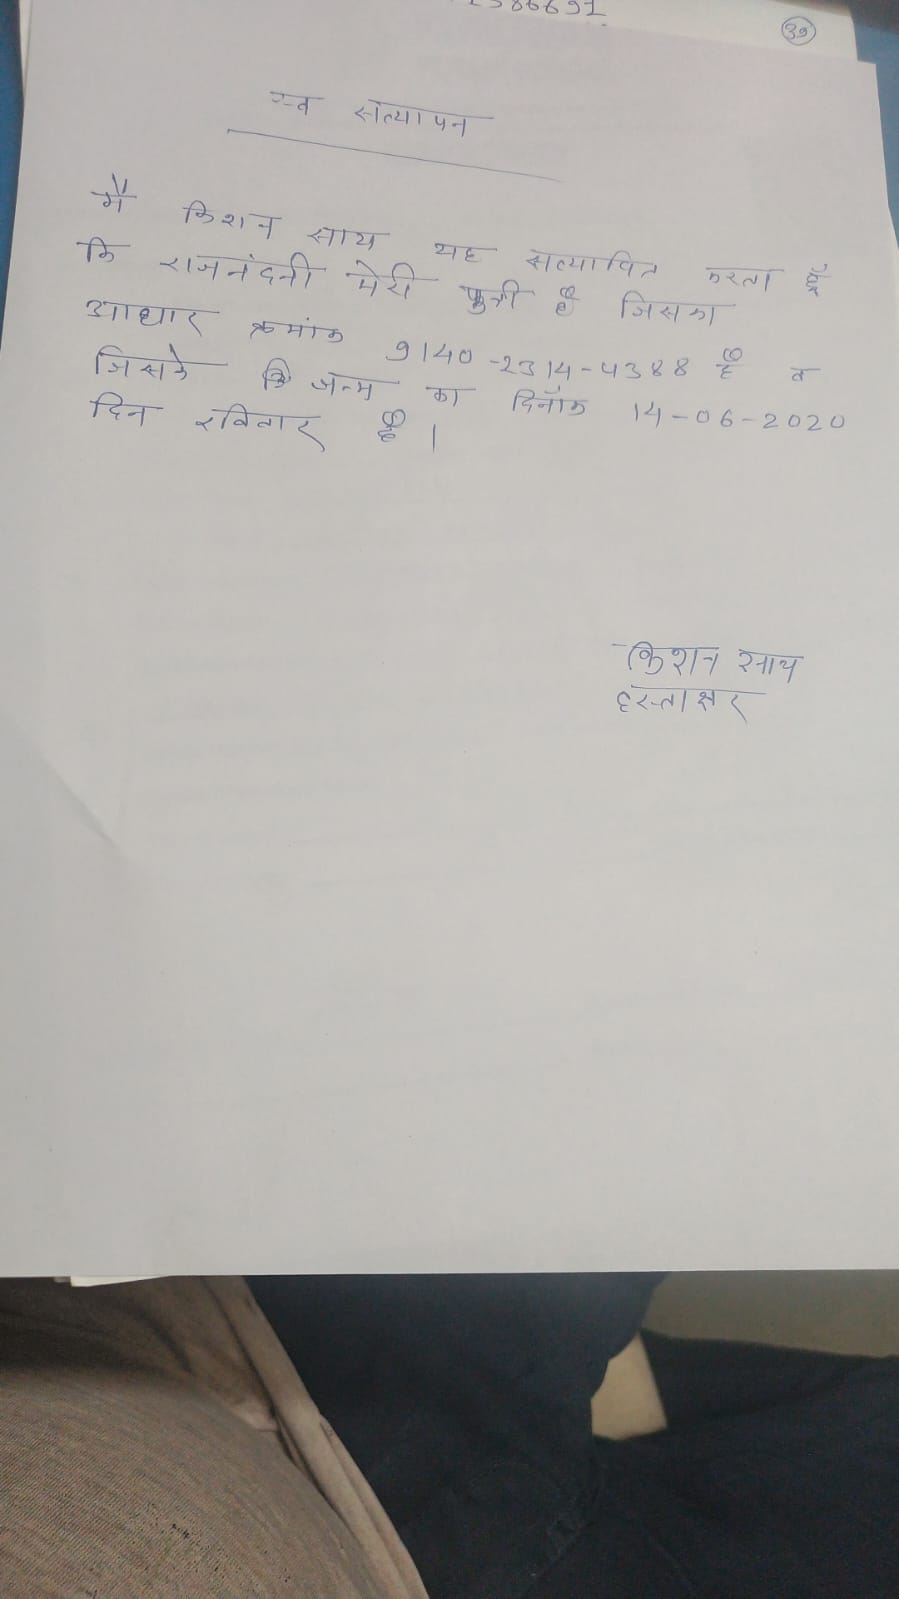 39
स्व सत्यापन
मैं किशन साय यह सत्यापित करता हूँ
कि राजनंदनी मेरी पुत्री है जिसका
आधार क्रमांक 9140-2314-4388 है व
जिसके कि जन्म का दिनाँक 14-06-2020
दिन रविवार है ।
किशन साय
हस्ताक्षर